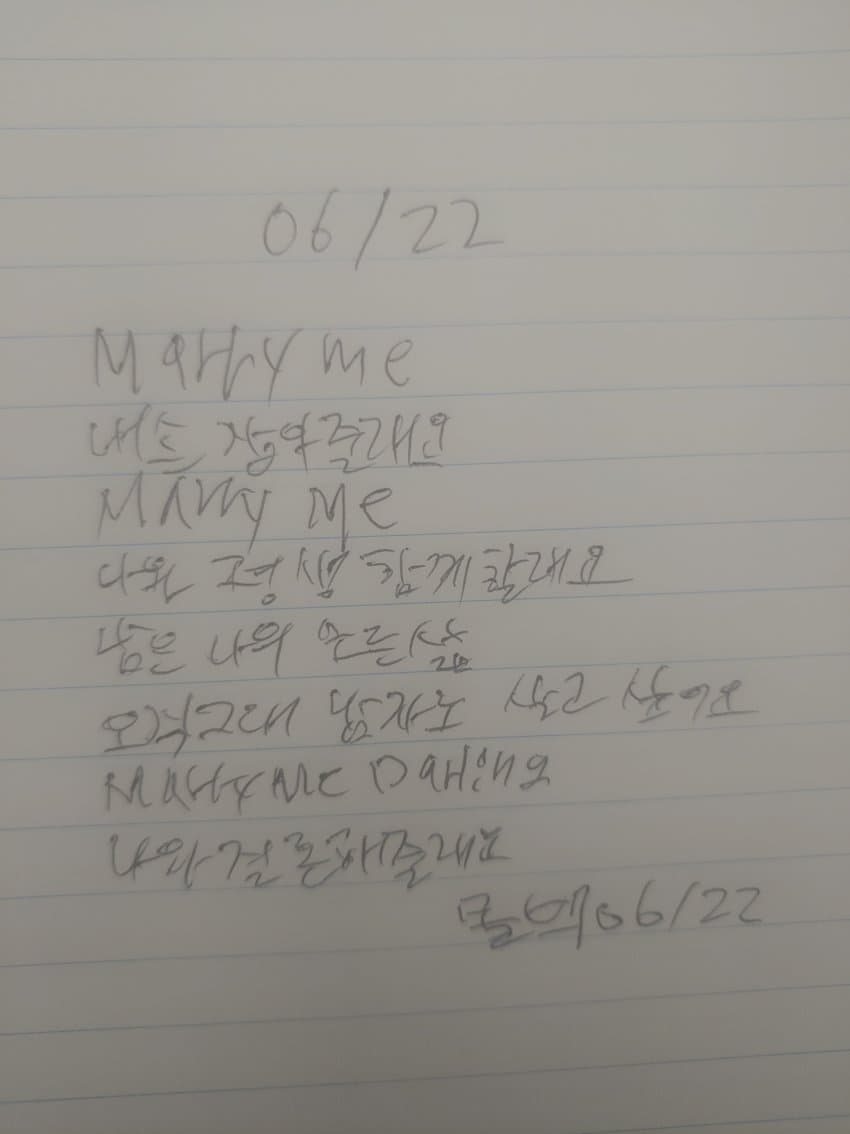 06/22
Marry me
내손 잡아줄래요
Marry Me
나와 평생 함께할래요
남은 나의 모든삶
오직그대 남자로 살고 싶어요
Marry Me
나와결혼해줄래요
06/22